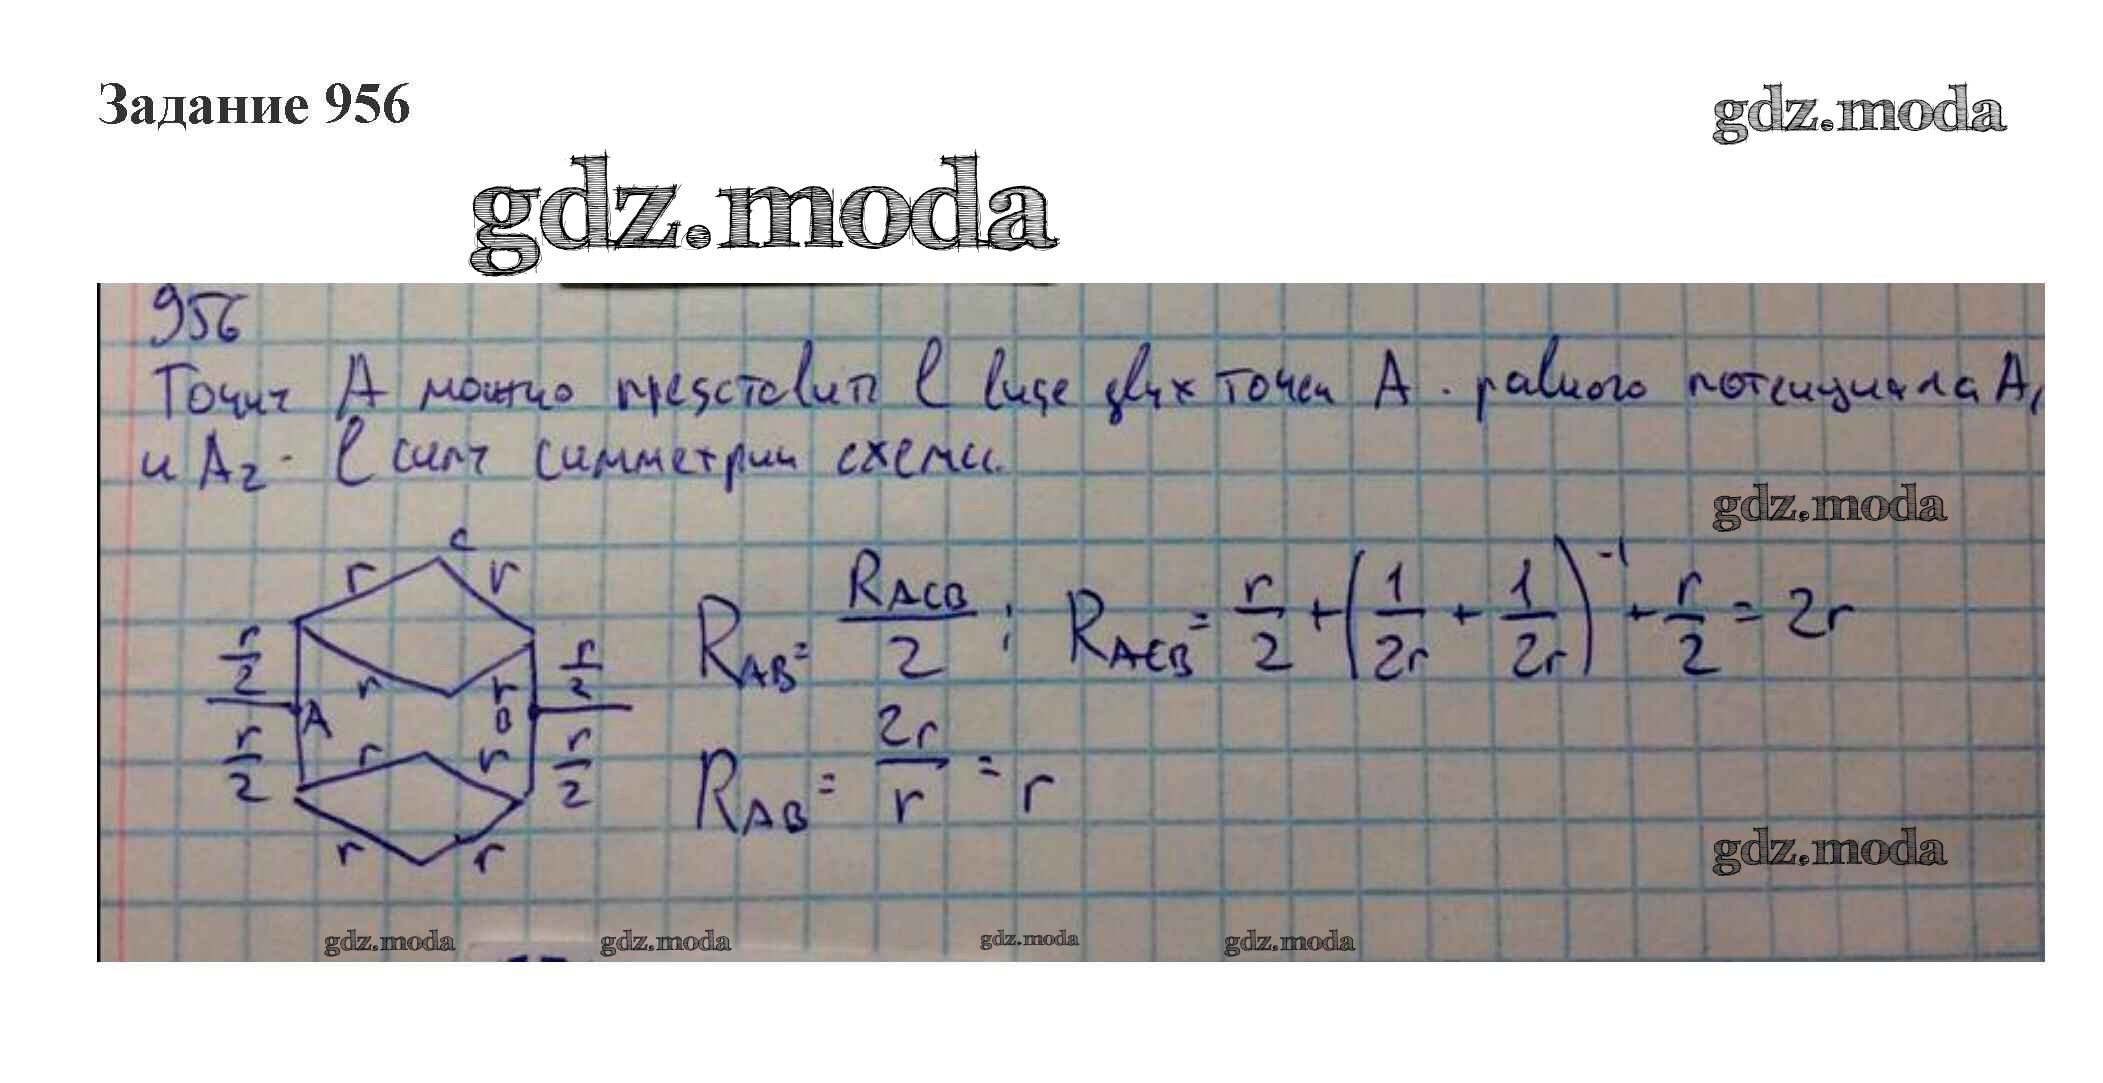 Задание 956
gdz.moda
gdz.moda
956
Точку A можно представить в виде двух точек A. равного потенциала A₁
и A₂ - в силу симметрии схемы.
gdz.moda
C
r r
r/2 r/2
r r
A B
r/2 r r r/2
r r
R_AB = R_ACB/2 ; R_ACB = r/2 + (1/2r + 1/2r)⁻¹ + r/2 = 2r
R_AB = 2r/r = r
gdz.moda
gdz.moda gdz.moda gdz.moda gdz.moda